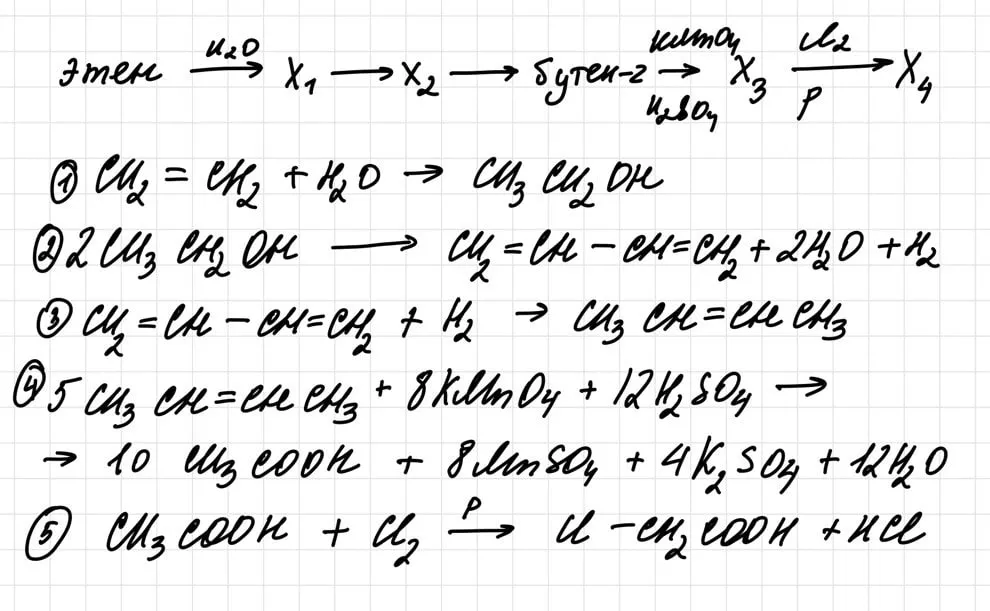 Этен —H₂O→ X₁ → X₂ → бутен-2 —KMnO₄/H₂SO₄→ X₃ —Cl₂/P→ X₄
① CH₂ = CH₂ + H₂O → CH₃ CH₂ OH
② 2 CH₃ CH₂ OH → CH₂ = CH – CH = CH₂ + 2H₂O + H₂
③ CH₂ = CH – CH = CH₂ + H₂ → CH₃ CH = CH CH₃
④ 5 CH₃ CH = CH CH₃ + 8KMnO₄ + 12H₂SO₄ →
→ 10 CH₃COOH + 8MnSO₄ + 4K₂SO₄ + 12H₂O
⑤ CH₃COOH + Cl₂ —P→ Cl – CH₂COOH + HCl